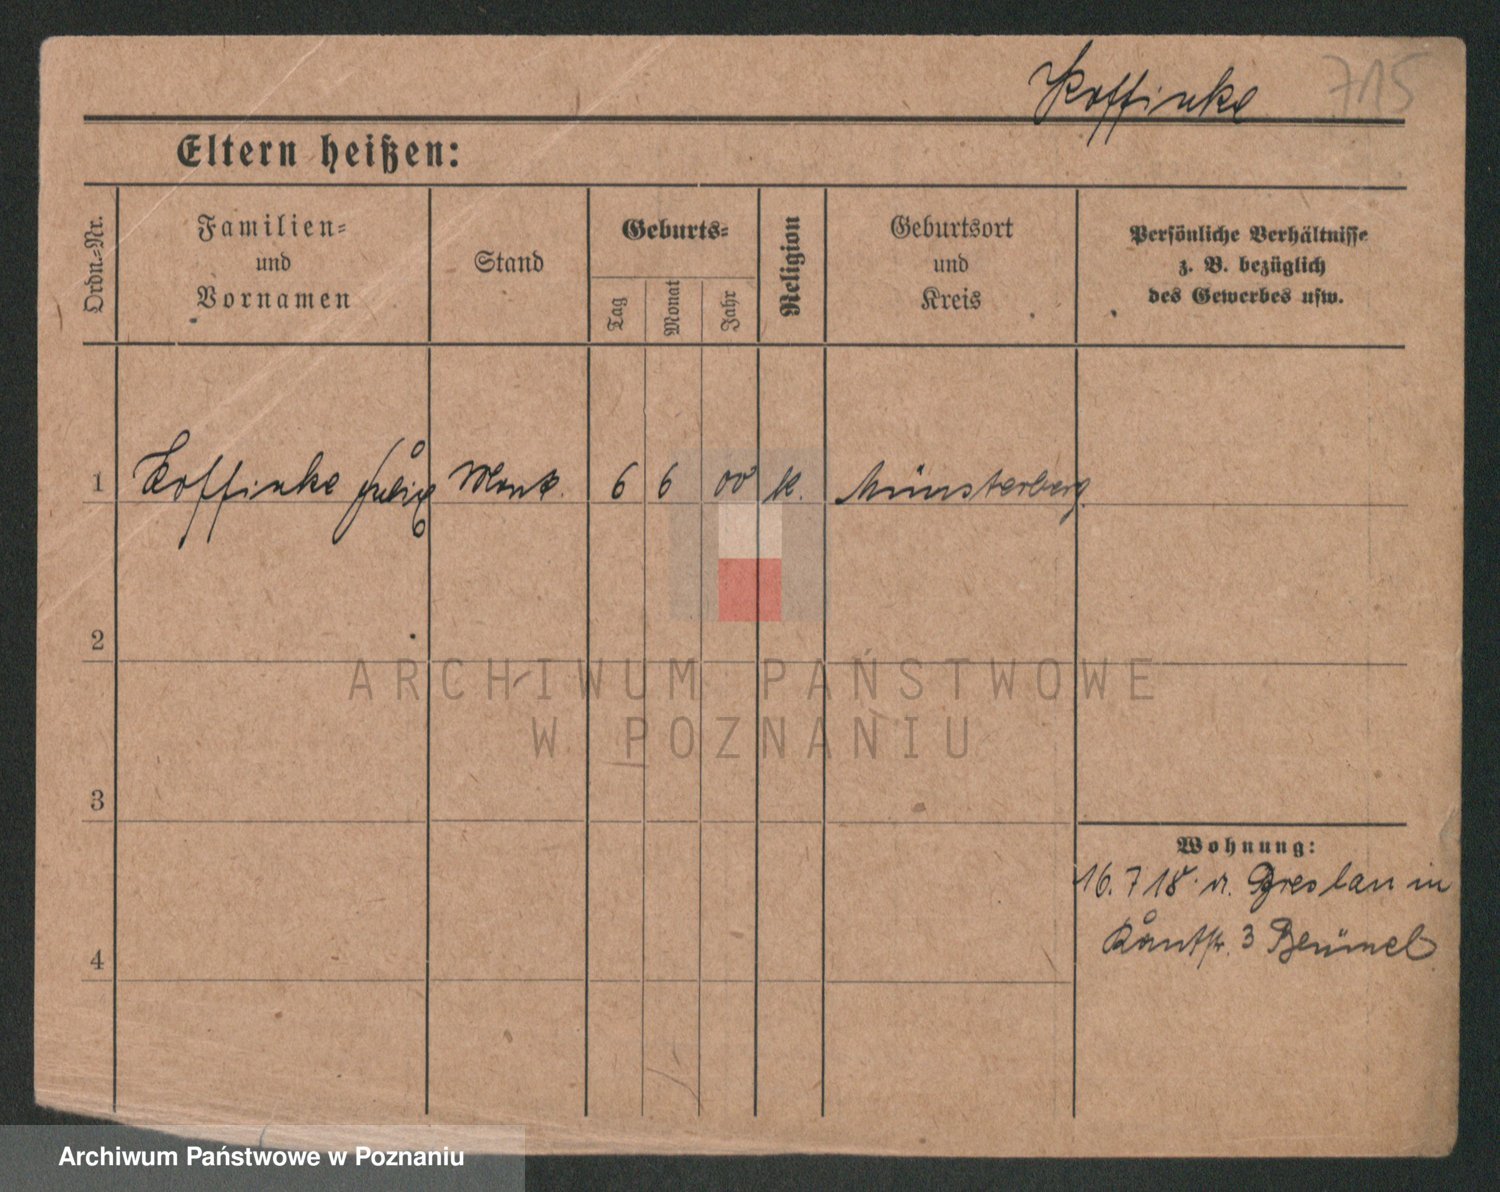 Koffinke 715
Eltern heißen:
Ordn.-Nr.
Familien-
und
Vornamen
Stand
Geburts-
Tag
Monat
Jahr
Religion
Geburtsort
und
Kreis
Persönliche Verhältnisse
z. B. bezüglich
des Gewerbes usw.
1 Koffinke 6 6 00 k. Münsterberg
2
ARCHIWUM PAŃSTWOWE
W POZNANIU
3
Wohnung:
16. 7 18. v. Breslau in
3
4
Archiwum Państwowe w Poznaniu